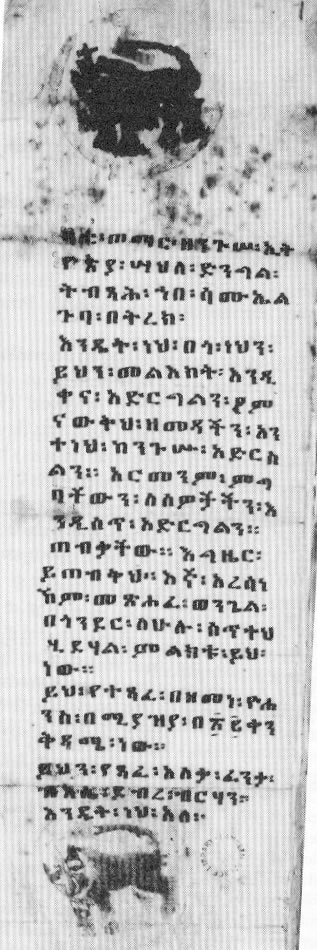 ዘንጉሠ፡ ኢት
ዮጵያ፡ ሣህለ፡ ድንግል፡
ትብጻሕ፡ ኀበ፡ ሳሙኤል
ጉባ፡ በትረክ፡
እንዴት፡ ነህ፡ በጎ፡ ነህን፡
ይህን፡ መልእክት፡ እንዲ
ቀና፡ አድርጓልን፡
ናውቅህ፡ ዘመዳችን፡ እን
ተነህ፡ ከንጉሡ፡ አድርስ
ልን። እርመንም፡ ምጣ
ባቸውን፡ ስለዎቻችን፡ እ
ንዲሰጥ፡ አድርጓልን።
ጠብቃቸው። እግዜር፡
ይጠብቅህ። እኛ፡
መጽሐፈ፡ ወንጌል፡
በጎንደር፡ ስሁሉ፡ ስጥተህ
ሂደሃል፡ ምልክቱ፡ ይህ፡
ነው።
ይህ፡ የተጻፈ፡ በዘመነ፡ ዮሐ
ንስ፡ በሚያዝያ፡ በ፳፭ ቀን
ቅዳሜ፡ ነው።
ይህን፡ የጻፈ፡ አለቃ፡ ፈንታ፡
ደብረ፡ ብርሃን።
እንዴት፡ ነህ፡ አለ።